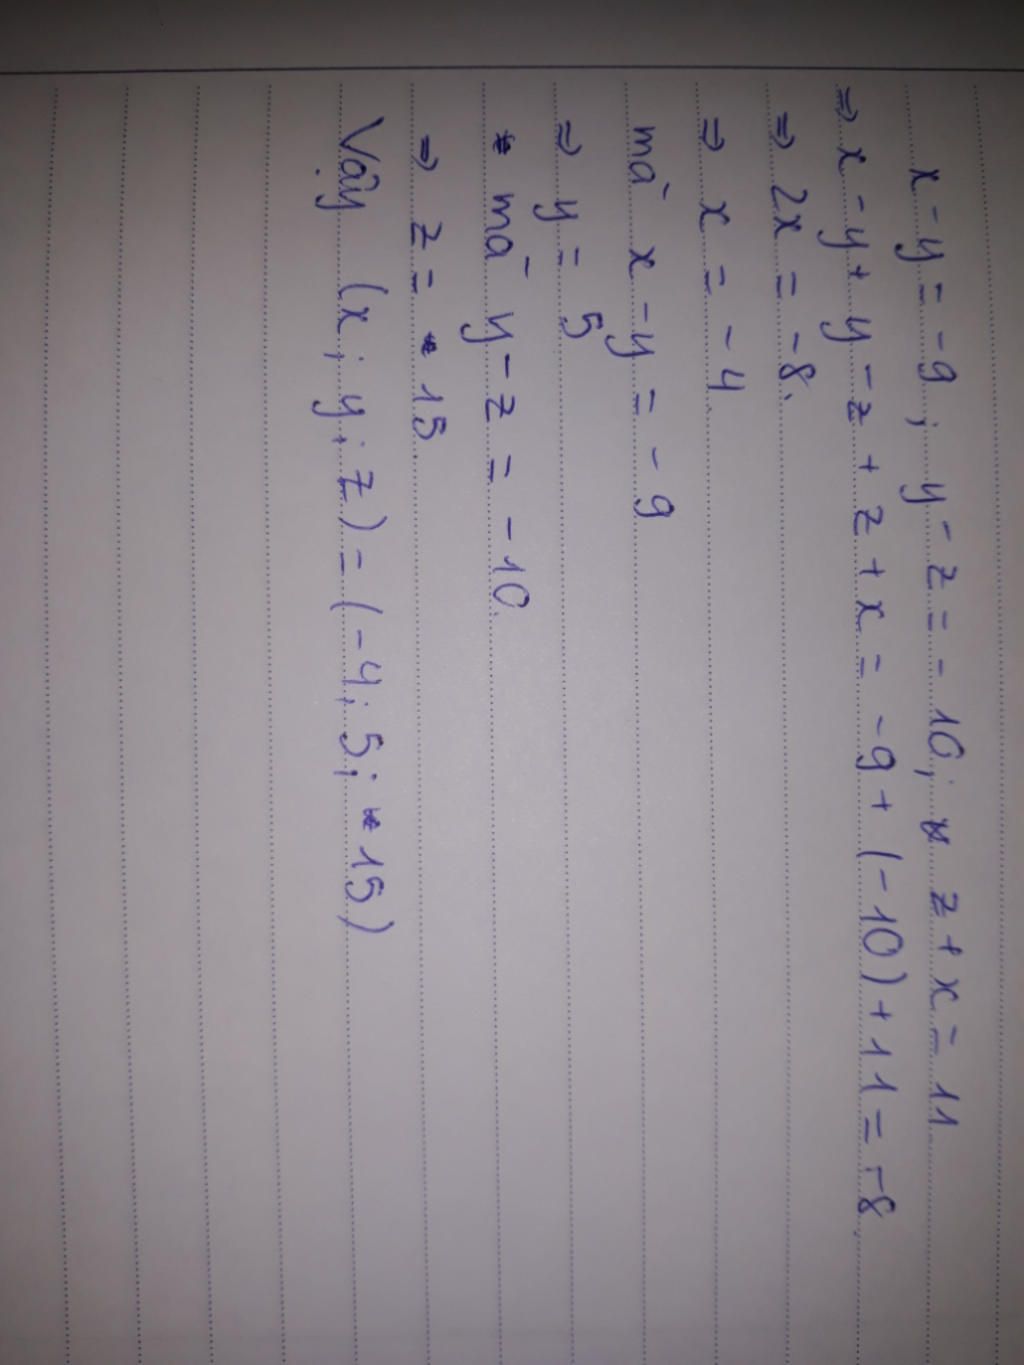 x - y = -9 ; y - z = -10 ; z + x = 11
=> x - y + y - z + z + x = -9 + (-10) + 11 = -8.
=> 2x = -8.
=> x = -4.
mà x - y = -9
=> y = 5
mà y - z = -10.
=> z = 15.
Vậy (x ; y ; z) = (-4 ; 5 ; 15)